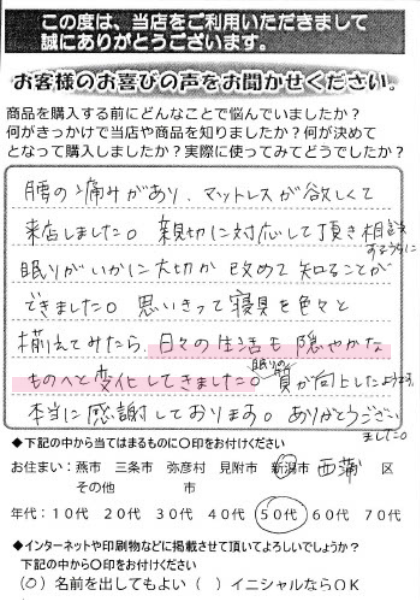 この度は、当店をご利用いただきまして
誠にありがとうございます。
お客様のお喜びの声をお聞かせください。
商品を購入する前にどんなことで悩んでいましたか？
何がきっかけで当店や商品を知りましたか？何が決めて
となって購入しましたか？実際に使ってみてどうでしたか？
腰の痛みがあり、マットレスが欲しくて
来店しました。親切に対応して頂き相談
するうちに
眠りがいかに大切か改めて知ることが
できました。思いきって寝具を色々と
揃えてみたら、日々の生活も穏やかな
ものへと変化してきました。眠りの質が向上したようです。
本当に感謝しております。ありがとうござい
ました。
◆下記の中から当てはまるものに〇印をお付けください
お住まい：燕市 三条市 弥彦村 見附市 新潟市 西蒲 区
その他 市
年代：10代 20代 30代 40代 50代 60代 70代
◆インターネットや印刷物などに掲載させて頂いてよろしいでしょうか？
下記の中から〇印をお付けください
（○）名前を出してもよい （ ）イニシャルならOK